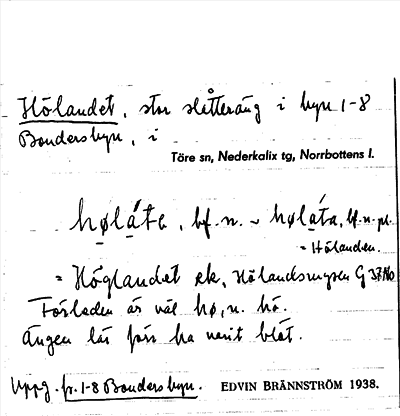 Hölandet, stor slåtteräng i byn 1-8
Bondersbyn, i
Töre sn, Nederkalix tg, Norrbottens l.
hø̣lạ́tɐ, bf. n. ~ hø̣lạ́ta, bf. n. pl.
= Hölanden.
= Höglandet ek, Hölandsmyren G 37 No
Förleden är väl hø, n. hö.
Ängen lär förr ha varit blöt.
Uppg. fr. 1-8 Bondersbyn. EDVIN BRÄNNSTRÖM 1938.